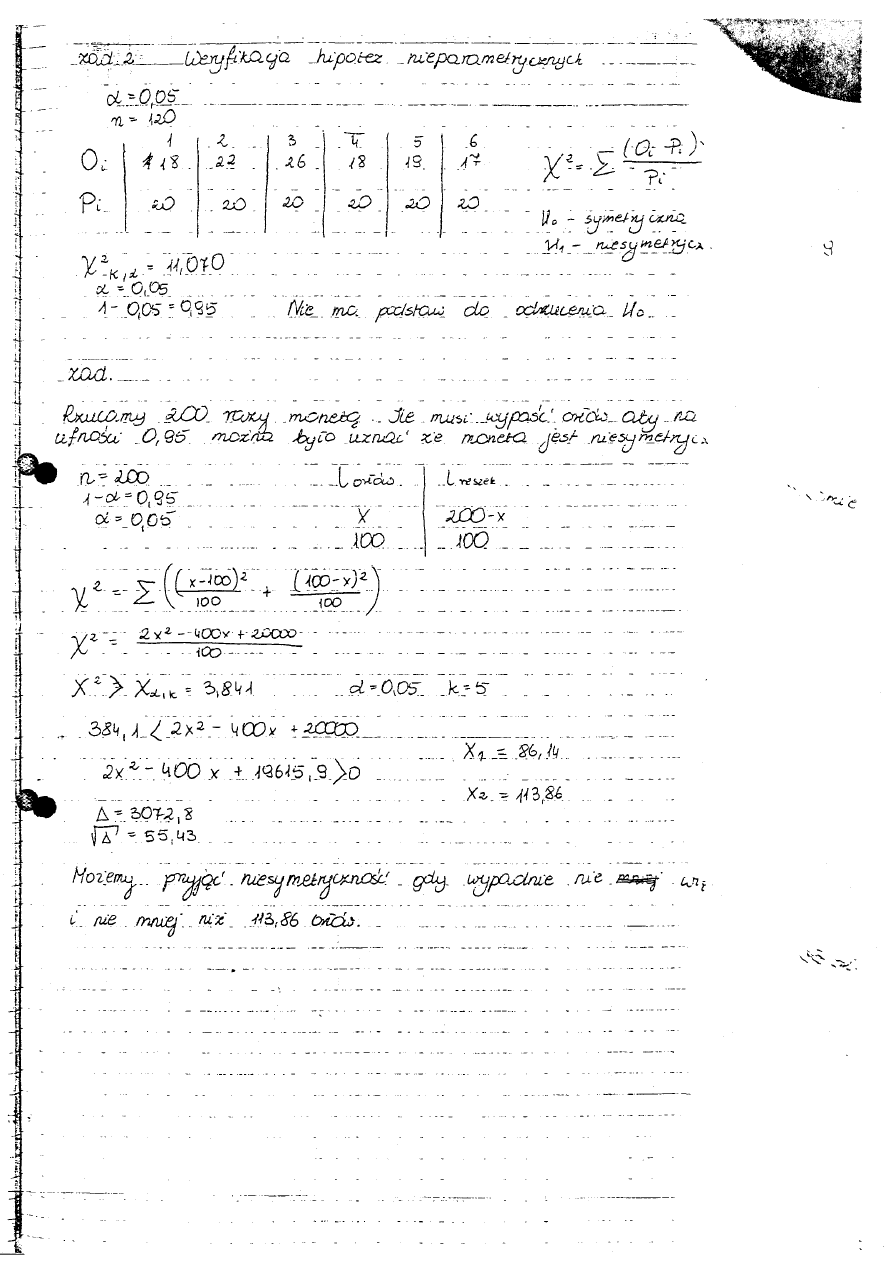 zad. 2 Weryfikacja hipotez nieparametrycznych
α = 0,05
n = 120
1 2 3 4 5 6
Oi 18 22 26 18 19 17
Pi 20 20 20 20 20 20
χ² = Σ (Oi - Pi)² / Pi
H₀ - symetryczna
H₁ - niesymetrycz
χ²k,α = 11,070
α = 0,05
1 - 0,05 = 0,95 Nie ma podstaw do odrzucenia H₀
zad.
Rzucamy 200 razy monetą. Ile musi wypaść orłów aby na
ufności 0,95 można było uznać że moneta jest niesymetrycz
n = 200 l orłów l reszek
1-α = 0,95
α = 0,05 X 200-x
100 100
χ² = Σ ( (x-100)² / 100 + (100-x)² / 100 )
χ² = 2x² - 400x + 20000 / 100
X² > Xα,k = 3,841 α = 0,05 k = 5
384,1 < 2x² - 400x + 20000
X₁ = 86,14
2x² - 400x + 19615,9 > 0
X₂ = 113,86
Δ = 3072,8
√Δ = 55,43
Możemy przyjąć niesymetryczność gdy wypadnie nie
i nie mniej niż 113,86 orłów.